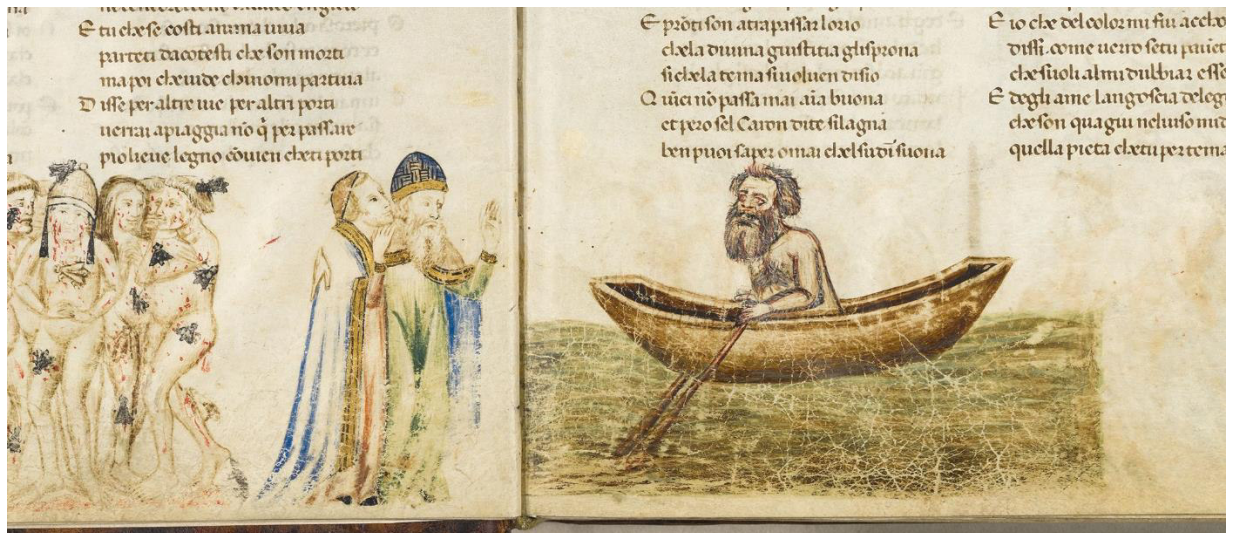 E tu che se costi anima uiua
parteti da cotesti che son morti
ma poi che uide ch io no mi partiua
Disse per altre uie per altri porti
uerrai a piaggia no q̄ per passare
piu lieue legno cōuien che ti porti
E prōti son a trapassar lo rio
che la diuina giustitia gli sprona
si che la tema si uolue in disio
Quici nō passa mai aīa buona
et pero se Caron di te si lagna
ben puoi saper omai che l suo dī suona
E io che del color mi fui
dissi come uerro se tu
che suoli al mi dubbiar
E degli a me langoscia
che son qua giu nel uiso
quella pieta che tu per tema